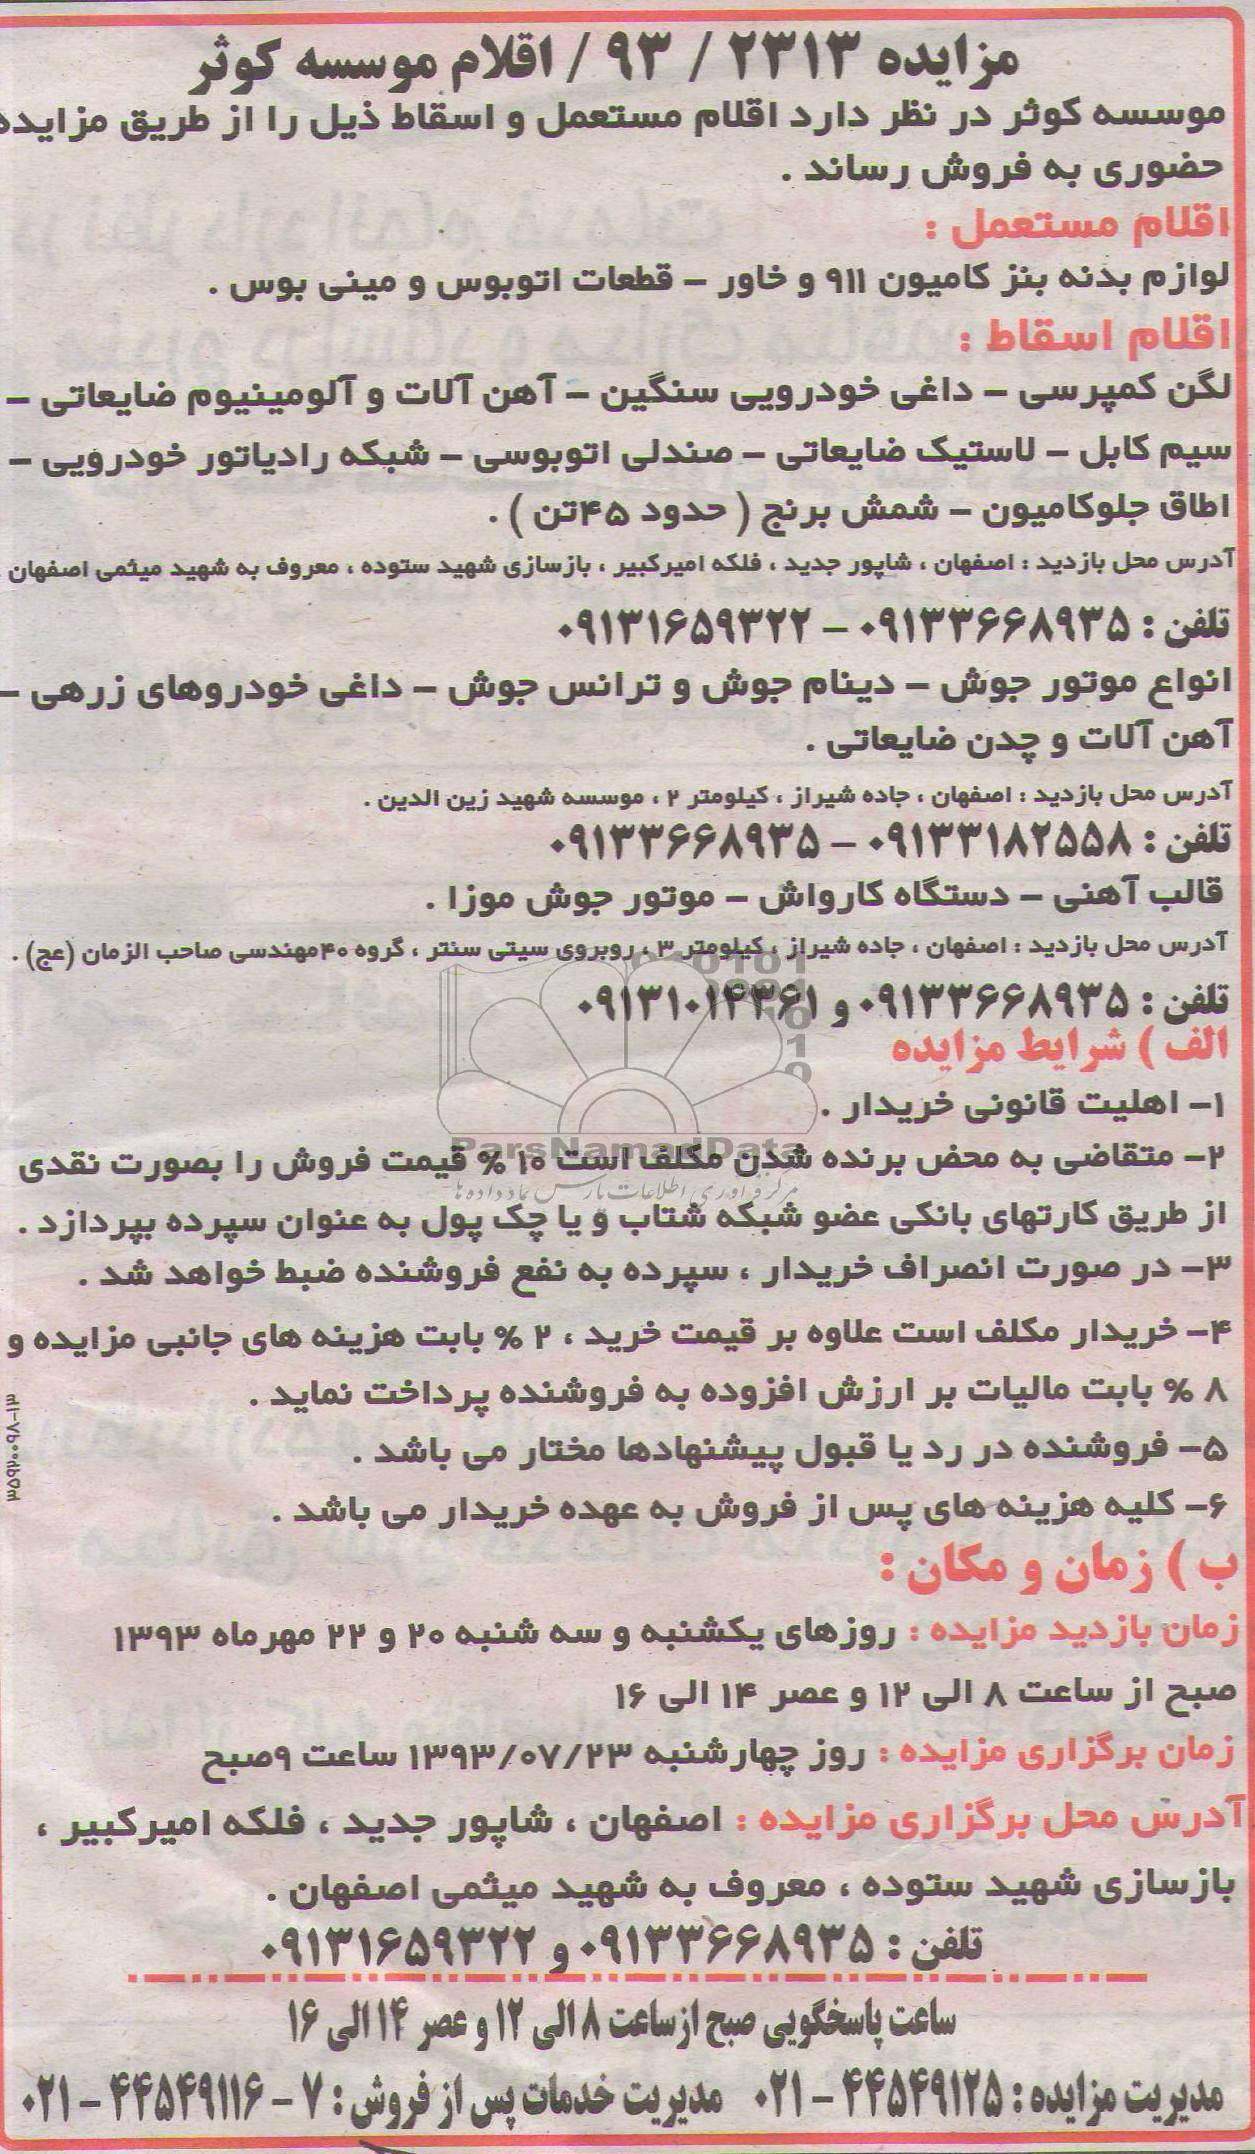 مزایده ۲۳۱۳ / ۹۳ / اقلام موسسه کوثر
موسسه کوثر در نظر دارد اقلام مستعمل و اسقاط ذیل را از طریق مزایده
حضوری به فروش رساند .
اقلام مستعمل :
لوازم بدنه بنز کامیون ۹۱۱ و خاور – قطعات اتوبوس و مینی بوس .
اقلام اسقاط :
لگن کمپرسی – داغی خودرویی سنگین – آهن آلات و آلومینیوم ضایعاتی –
سیم کابل – لاستیک ضایعاتی – صندلی اتوبوسی – شبکه رادیاتور خودرویی –
اطاق جلوکامیون – شمش برنج ( حدود ۴۵تن ) .
آدرس محل بازدید : اصفهان ، شاپور جدید ، فلکه امیرکبیر ، بازسازی شهید ستوده ، معروف به شهید میثمی اصفهان .
تلفن : ۰۹۱۳۳۶۶۸۹۳۵ – ۰۹۱۳۱۶۵۹۳۲۲
انواع موتور جوش – دینام جوش و ترانس جوش – داغی خودروهای زرهی –
آهن آلات و چدن ضایعاتی .
آدرس محل بازدید : اصفهان ، جاده شیراز ، کیلومتر ۲ ، موسسه شهید زین الدین .
تلفن : ۰۹۱۳۳۱۸۲۵۵۸ – ۰۹۱۳۳۶۶۸۹۳۵
قالب آهنی – دستگاه کارواش – موتور جوش موزا .
آدرس محل بازدید : اصفهان ، جاده شیراز ، کیلومتر ۳ ، روبروی سیتی سنتر ، گروه ۴۰مهندسی صاحب الزمان (عج) .
تلفن : ۰۹۱۳۳۶۶۸۹۳۵ و ۰۹۱۳۱۰۱۴۳۶۱
الف ) شرایط مزایده
۱– اهلیت قانونی خریدار .
ParsNamadData
۲– متقاضی به محض برنده شدن مکلف است ۱۰ % قیمت فروش را بصورت نقدی
مرکز فرآوری اطلاعات پارس نماد داده ها
از طریق کارتهای بانکی عضو شبکه شتاب و یا چک پول به عنوان سپرده بپردازد .
۳– در صورت انصراف خریدار ، سپرده به نفع فروشنده ضبط خواهد شد .
۴– خریدار مکلف است علاوه بر قیمت خرید ، ۲ % بابت هزینه های جانبی مزایده و
۸ % بابت مالیات بر ارزش افزوده به فروشنده پرداخت نماید .
۵– فروشنده در رد یا قبول پیشنهادها مختار می باشد .
۶– کلیه هزینه های پس از فروش به عهده خریدار می باشد .
ب ) زمان و مکان :
زمان بازدید مزایده : روزهای یکشنبه و سه شنبه ۲۰ و ۲۲ مهرماه ۱۳۹۳
صبح از ساعت ۸ الی ۱۲ و عصر ۱۴ الی ۱۶
زمان برگزاری مزایده : روز چهارشنبه ۱۳۹۳/۰۷/۲۳ ساعت ۹صبح
آدرس محل برگزاری مزایده : اصفهان ، شاپور جدید ، فلکه امیرکبیر ،
بازسازی شهید ستوده ، معروف به شهید میثمی اصفهان .
تلفن : ۰۹۱۳۳۶۶۸۹۳۵ و ۰۹۱۳۱۶۵۹۳۲۲
ساعت پاسخگویی صبح ازساعت ۸ الی ۱۲ و عصر ۱۴ الی ۱۶
مدیریت مزایده : ۴۴۵۴۹۱۲۵ – ۰۲۱ مدیریت خدمات پس از فروش : ۷ – ۴۴۵۴۹۱۱۶ – ۰۲۱